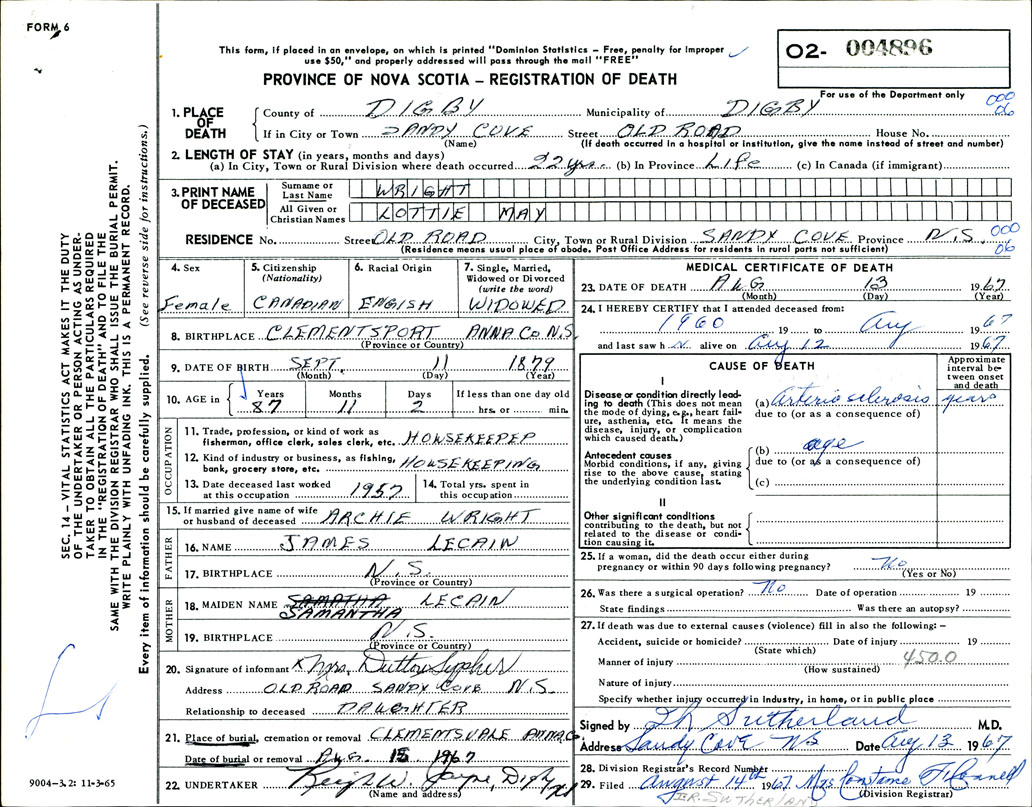 FORM 6
This form, if placed in an envelope, on which is printed "Dominion Statistics – Free, penalty for Improper
use $50," and properly addressed will pass through the mail "FREE"
PROVINCE OF NOVA SCOTIA – REGISTRATION OF DEATH
O2- 004896
For use of the Department only
000
06
SEC. 14 – VITAL STATISTICS ACT MAKES IT THE DUTY
OF THE UNDERTAKER OR PERSON ACTING AS UNDER-
TAKER TO OBTAIN ALL THE PARTICULARS REQUIRED
IN THE "REGISTRATION OF DEATH" AND TO FILE THE
SAME WITH THE DIVISION REGISTRAR WHO SHALL ISSUE THE BURIAL PERMIT.
WRITE PLAINLY WITH UNFADING INK. THIS IS A PERMANENT RECORD.
Every item of information should be carefully supplied. (See reverse side for instructions.)
1. PLACE OF DEATH County of DIGBY Municipality of DIGBY
If in City or Town SANDY COVE Street OLD ROAD House No.
(Name) (If death occurred in a hospital or institution, give the name instead of street and number)
2. LENGTH OF STAY (in years, months and days)
(a) In City, Town or Rural Division where death occurred 22 yrs. (b) In Province Life (c) In Canada (if immigrant)
3. PRINT NAME OF DECEASED Surname or Last Name WRIGHT
All Given or Christian Names LOTTIE MAY
RESIDENCE No. Street OLD ROAD City, Town or Rural Division SANDY COVE Province N.S. 000
06
(Residence means usual place of abode. Post Office Address for residents in rural parts not sufficient)
4. Sex Female
5. Citizenship (Nationality) CANADIAN
6. Racial Origin ENGISH
7. Single, Married, Widowed or Divorced (write the word) WIDOWED
8. BIRTHPLACE CLEMENTSPORT ANNA. Co N.S.
(Province or Country)
9. DATE OF BIRTH SEPT. 11 1879
(Month) (Day) (Year)
10. AGE in Years 87 Months 11 Days 2 If less than one day old hrs. or min.
OCCUPATION
11. Trade, profession, or kind of work as
fisherman, office clerk, sales clerk, etc. HOWSEKEEPEP
12. Kind of industry or business, as fishing,
bank, grocery store, etc. HOWSEKEEPING
13. Date deceased last worked
at this occupation 1957
14. Total yrs. spent in
this occupation
15. If married give name of wife
or husband of deceased ARCHIE WRIGHT
FATHER
16. NAME JAMES LECAIN
17. BIRTHPLACE N.S.
(Province or Country)
MOTHER
18. MAIDEN NAME SAMATHA LECAIN
SAMANTHA
19. BIRTHPLACE N.S.
(Province or Country)
20. Signature of informant x Mrs. Dutton Sypher
Address OLD ROAD SANDY COVE N.S.
Relationship to deceased DAUGHTER
21. Place of burial, cremation or removal CLEMENTSVALE ANNA. C
Date of burial or removal AUG. 15 1967
22. UNDERTAKER W. Jayne, Digby NS
(Name and address)
9004-3.2: 11-3-65
MEDICAL CERTIFICATE OF DEATH
23. DATE OF DEATH AUG 13 1967
(Month) (Day) (Year)
24. I HEREBY CERTIFY that I attended deceased from:
1960 19 to Aug 1967
and last saw h alive on Aug 12 1967
CAUSE OF DEATH
Approximate interval between onset and death
I
Disease or condition directly lead-
ing to death (This does not mean
the mode of dying, e.g., heart fail-
ure, asthenia, etc. It means the
disease, injury, or complication
which caused death.)
(a) Arterio sclerosis years
due to (or as a consequence of)
Antecedent causes
Morbid conditions, if any, giving
rise to the above cause, stating
the underlying condition last.
(b) age
due to (or as a consequence of)
(c)
II
Other significant conditions
contributing to the death, but not
related to the disease or condi-
tion causing it.
25. If a woman, did the death occur either during
pregnancy or within 90 days following pregnancy? No
(Yes or No)
26. Was there a surgical operation? No Date of operation 19
State findings Was there an autopsy?
27. If death was due to external causes (violence) fill in also the following: –
Accident, suicide or homicide? Date of injury 19
(State which)
Manner of injury 450.0
(How sustained)
Nature of injury
Specify whether injury occurred in industry, in home, or in public place
Signed by Sutherland M.D.
Address Sandy Cove NS Date Aug 13 1967
28. Division Registrar's Record Number
29. Filed August 14th 1967 Mrs Constance O'Connell
(Division Registrar)